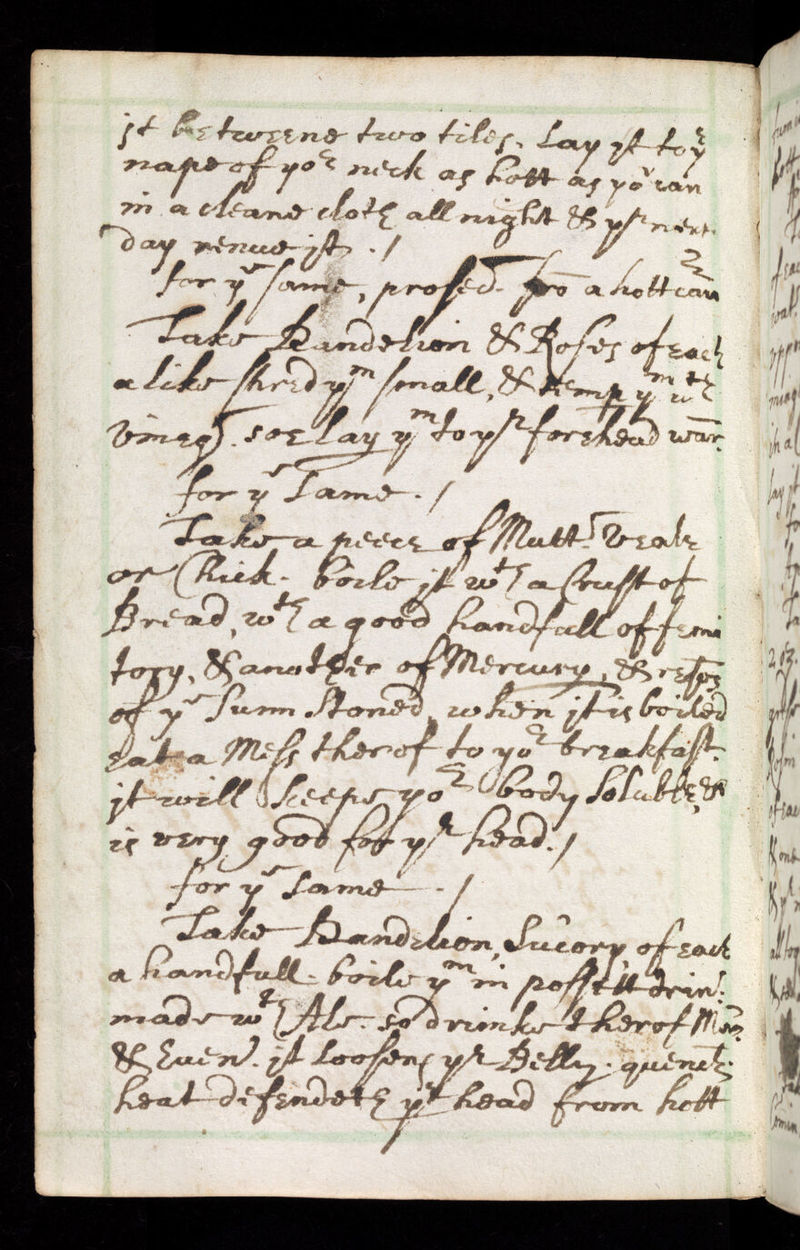 jt betweene two tiles. Lay jt to yr
nape of yor neck as hott as you can
in a cleane cloth all night & ye next
day renue jt ./
for ye same, prosed. fro a hott cau
Take Dandelion & Roses of each
alike shred ym small, & temp ym wth
Vineg. soe lay ym to yr forehead war.
for ye same ./
Take a peece of Mutt. Veale
or Chick. boile jt wth a Crust of
Bread, wth a good handfull of femi
tory, & another of Mercury, &
of ye Sunn Stoned, when jt is boiled
eat a Mess therof to yor breakfast.
jt will keepe yor body soluble, &
is very good for yr head./
for ye same ./
Take Dandelion, Sucory, of each
a handfull. boile ym in possett drin:
made wth Ale. so drinke therof Mor:
& Euen. jt Loosens yr Belly. quench:
heat defendeth yr head from hott